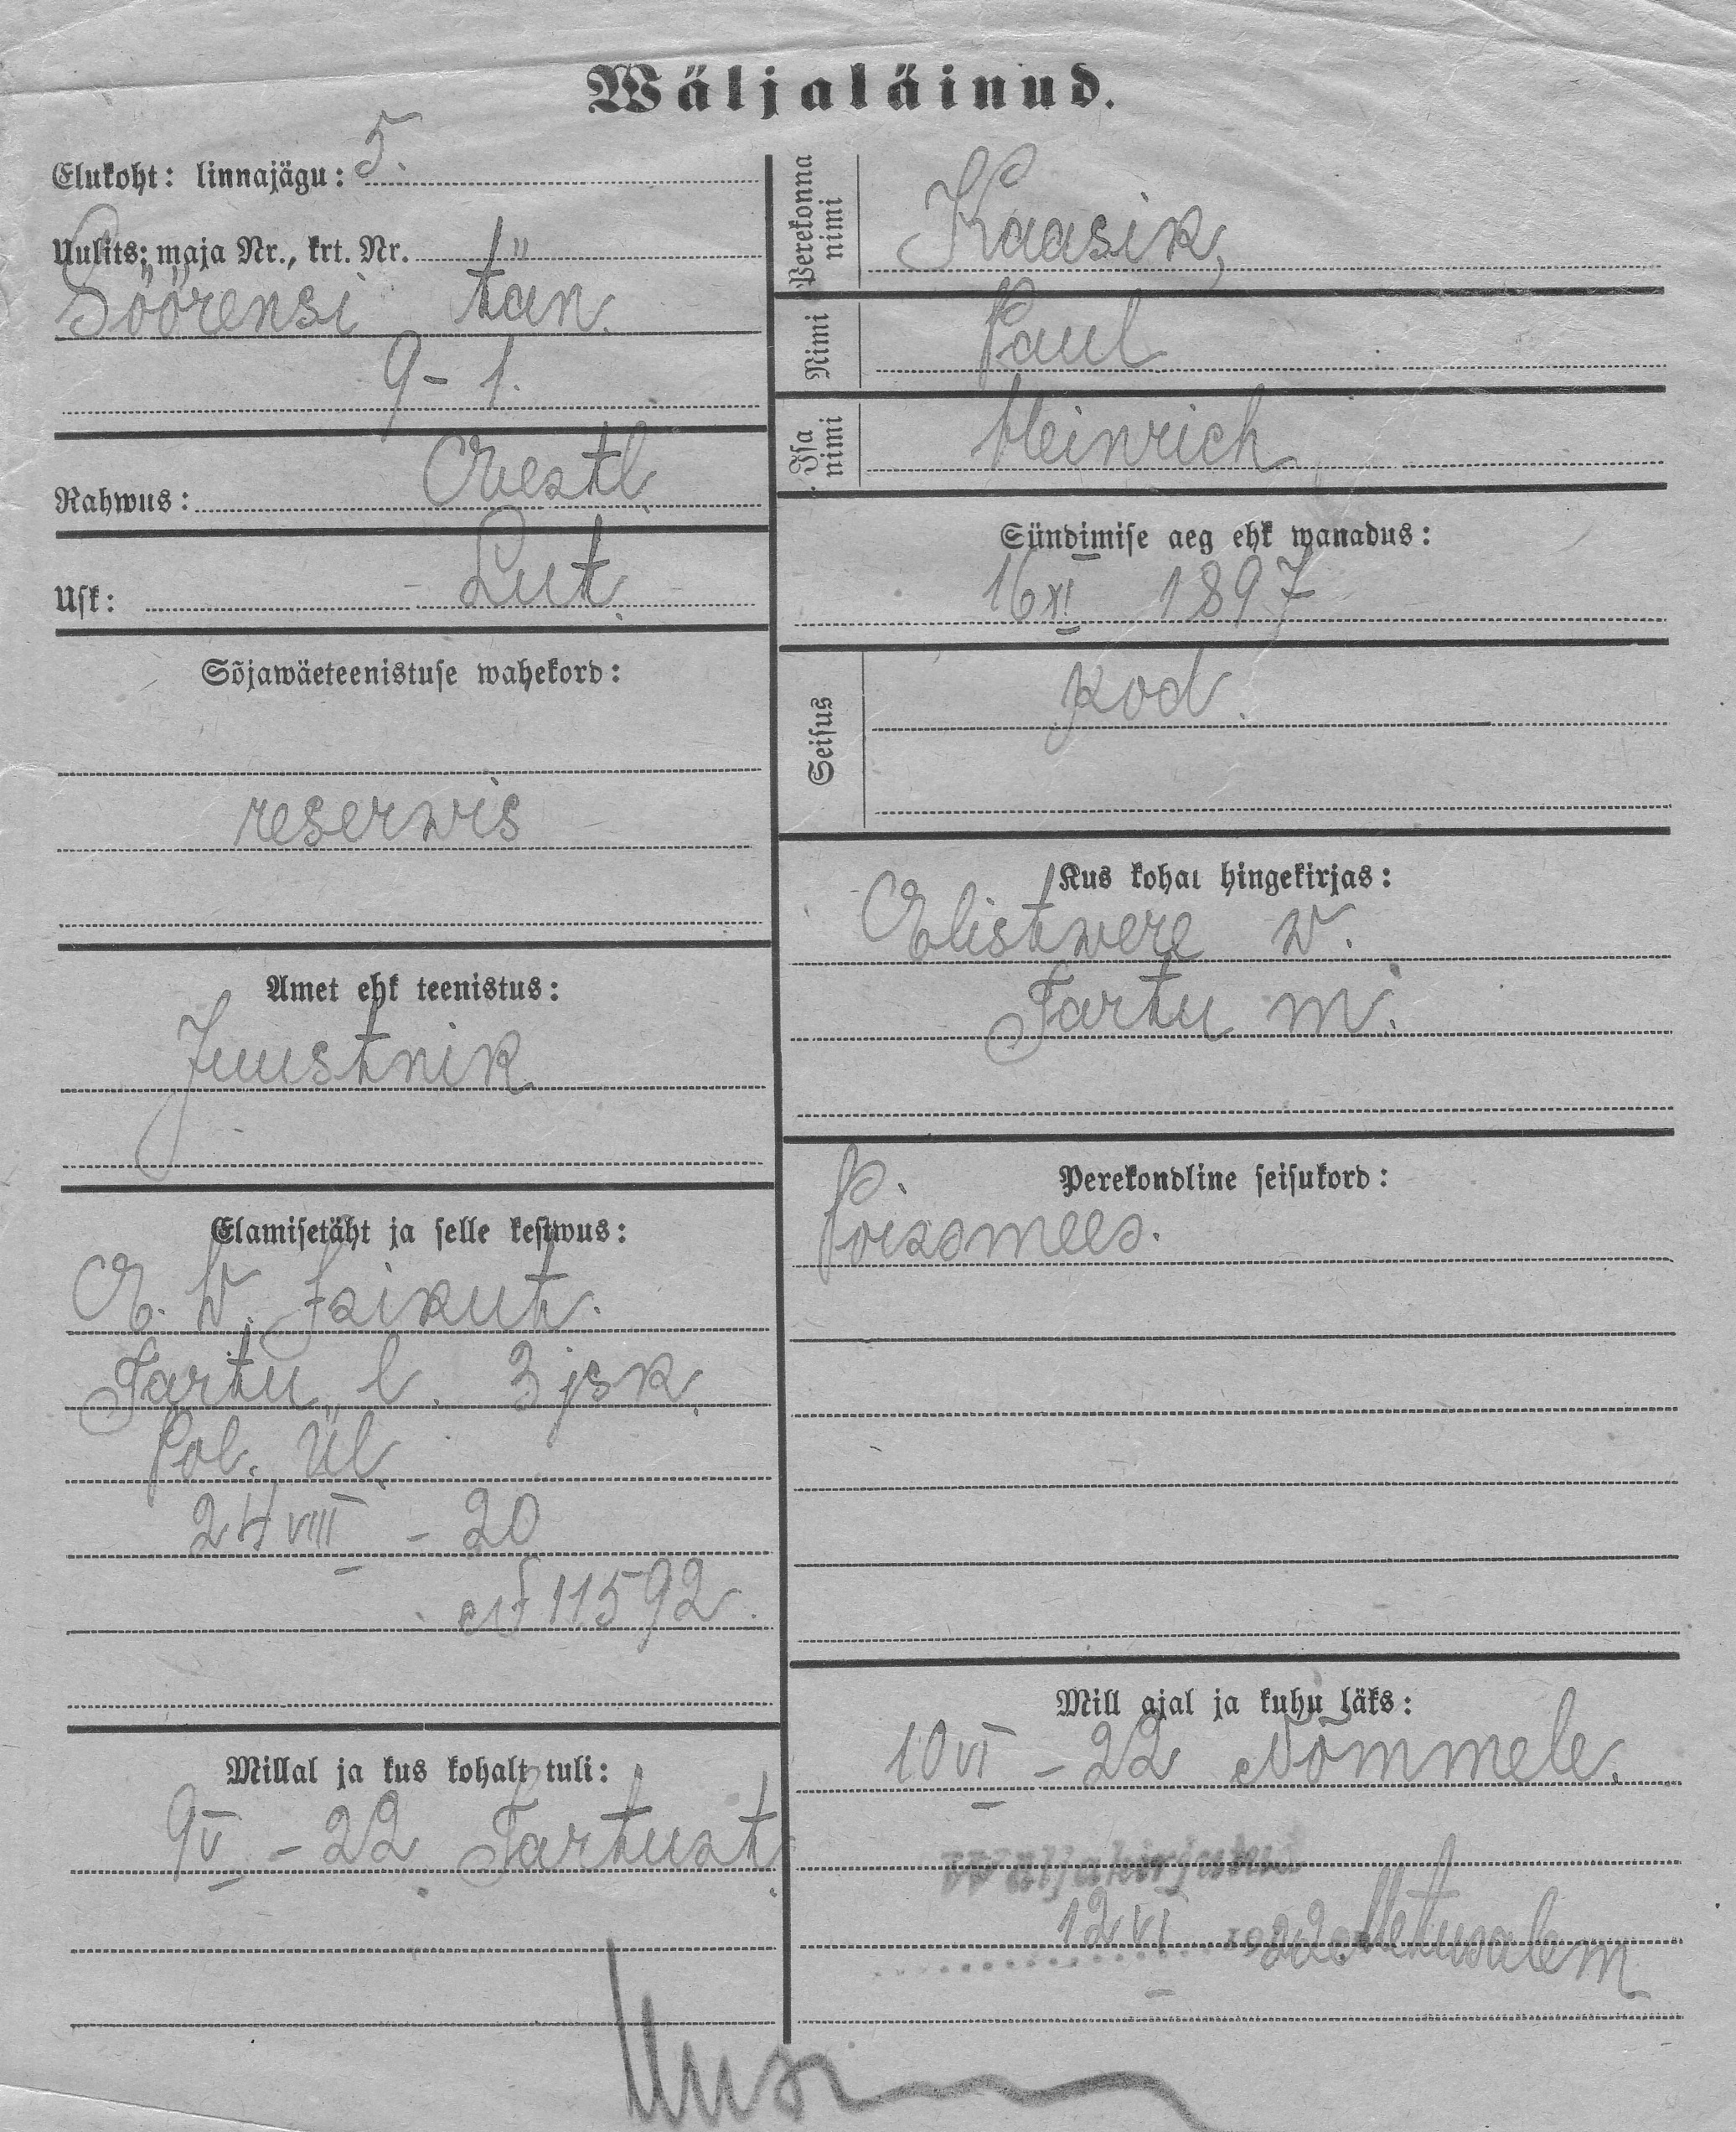 Wäljaläinud.
Elukoht: linnajägu: 5.
Uulits; maja Nr., krt. Nr.
Söörensi tän.
9 – 1.
Rahwus: Eestl.
Usk: Lut.
Sõjawäeteenistuse wahekord:
reserwis
Amet ehk teenistus:
Juustnik
Elamisetäht ja selle kestwus:
E. W. Isikut.
Tartu l. 3 jsk.
Pol. ül.
24 VIII – 20
№ 11592.
Millal ja kus kohalt tuli:
9 V – 22 Tartust
Perekonna nimi
Kaasik,
Nimi
Paul
Isa nimi
Heinrich
Sündimise aeg ehk wanadus:
16 XI 1897
Seisus
kod.
Kus kohal hingekirjas:
Elistwere w.
Tartu m.
Perekondline seisukord:
Poissmees.
Mill ajal ja kuhu läks:
10 VI – 22 Nõmmele.
Wäljakirjutud
12 VI 1922 Metusalem